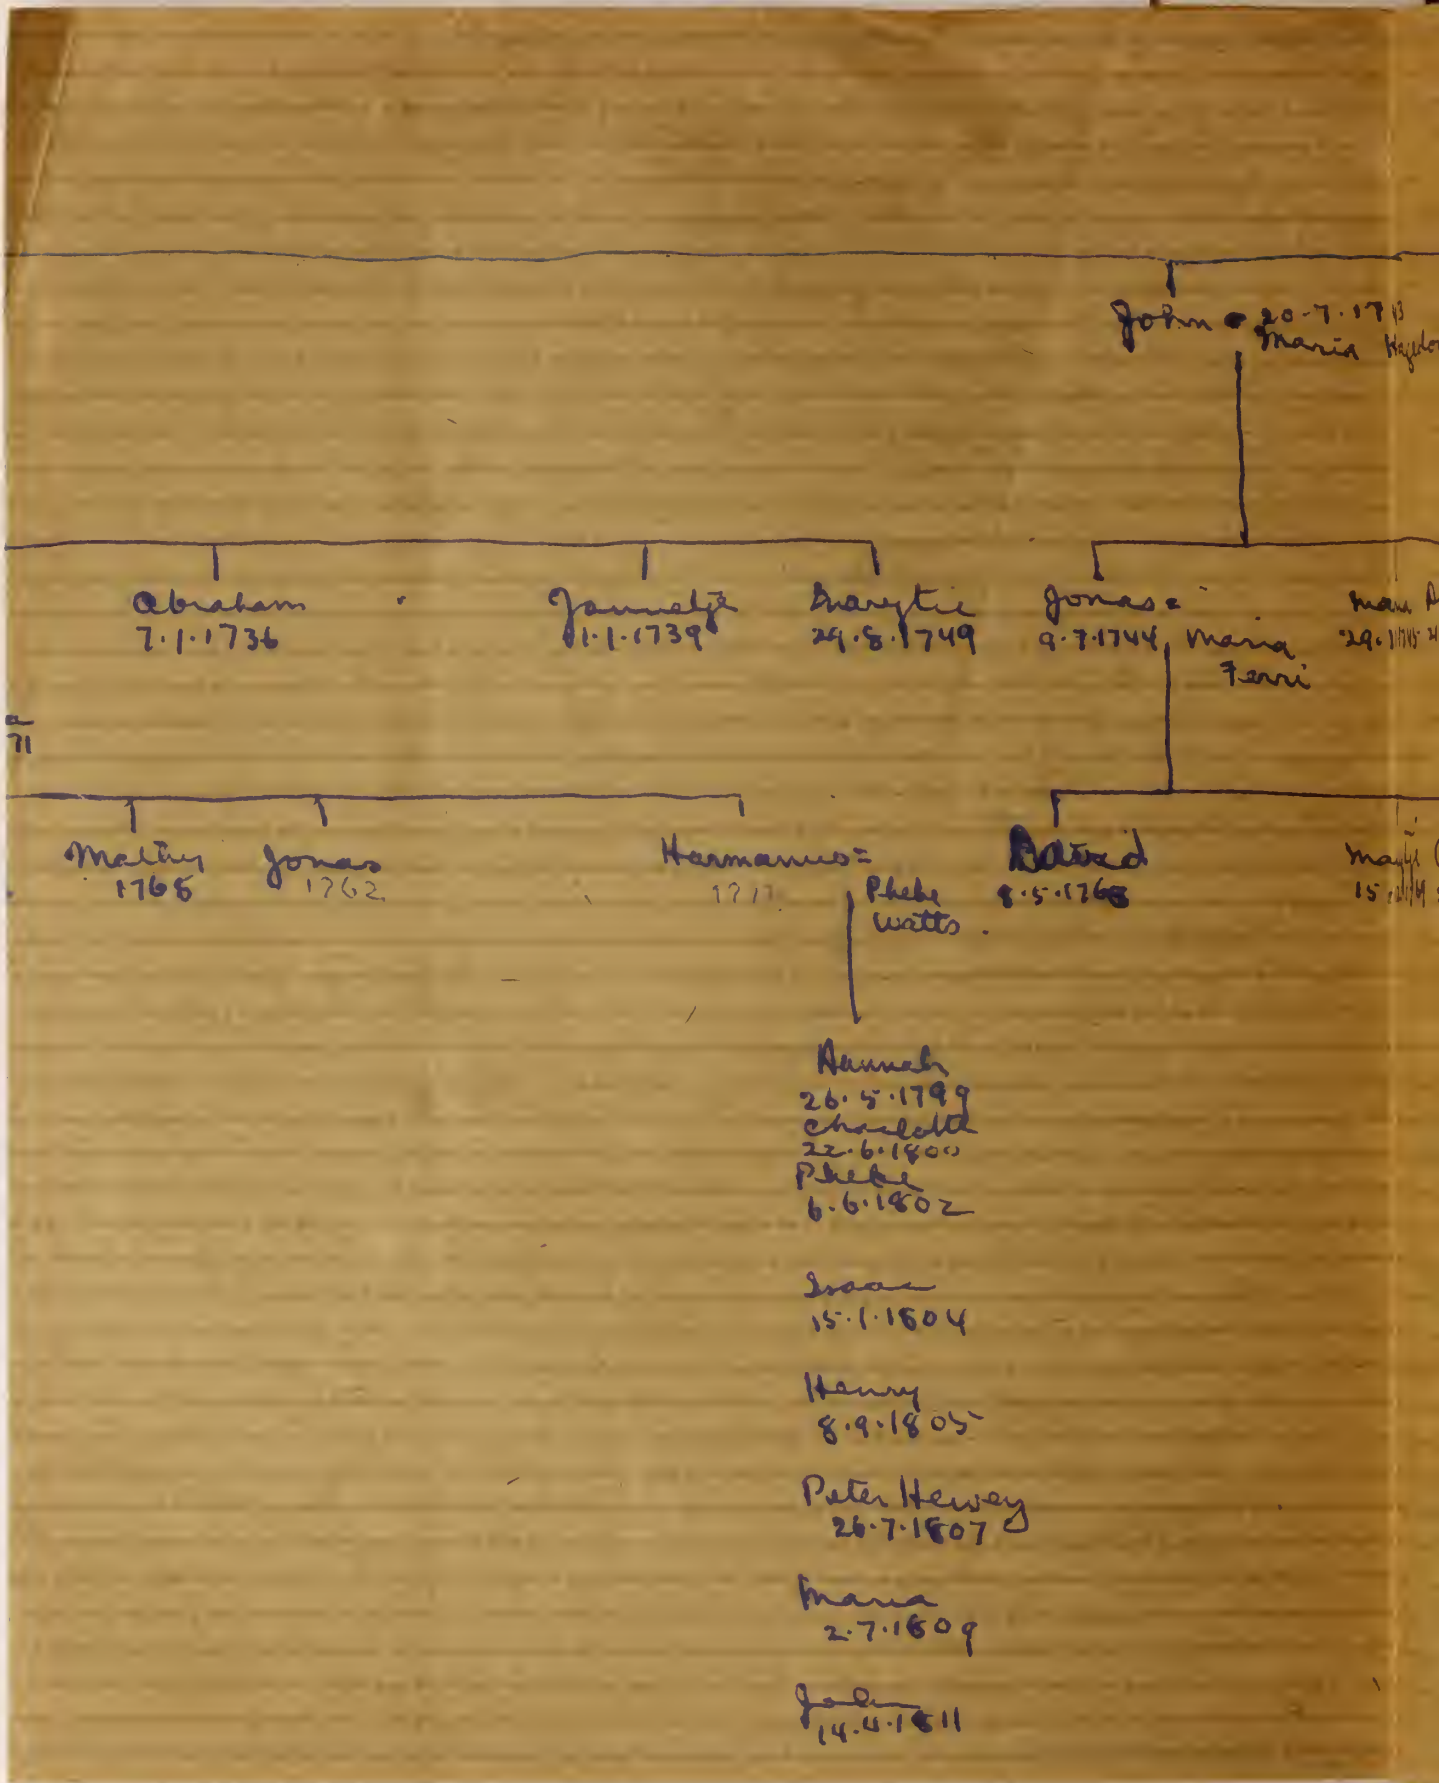 John = 20.7.17
Maria
Abraham
7.1.1736
Jannetje
11.1.1739
Marytie
29.8.1749
Jonas =
9.7.1744
Maria
Ferri
a
71
1768
Jonas
1762
Harmanus =
Phebe
Watts.
David
8.5.1768
Hannah
26.5.1799
Charlotte
22.6.1800
Phebe
6.6.1802
Isaac
15.1.1804
Henry
8.9.1805
Peter Hewey
26.7.1807
Maria
2.7.1809
John
14.4.1811